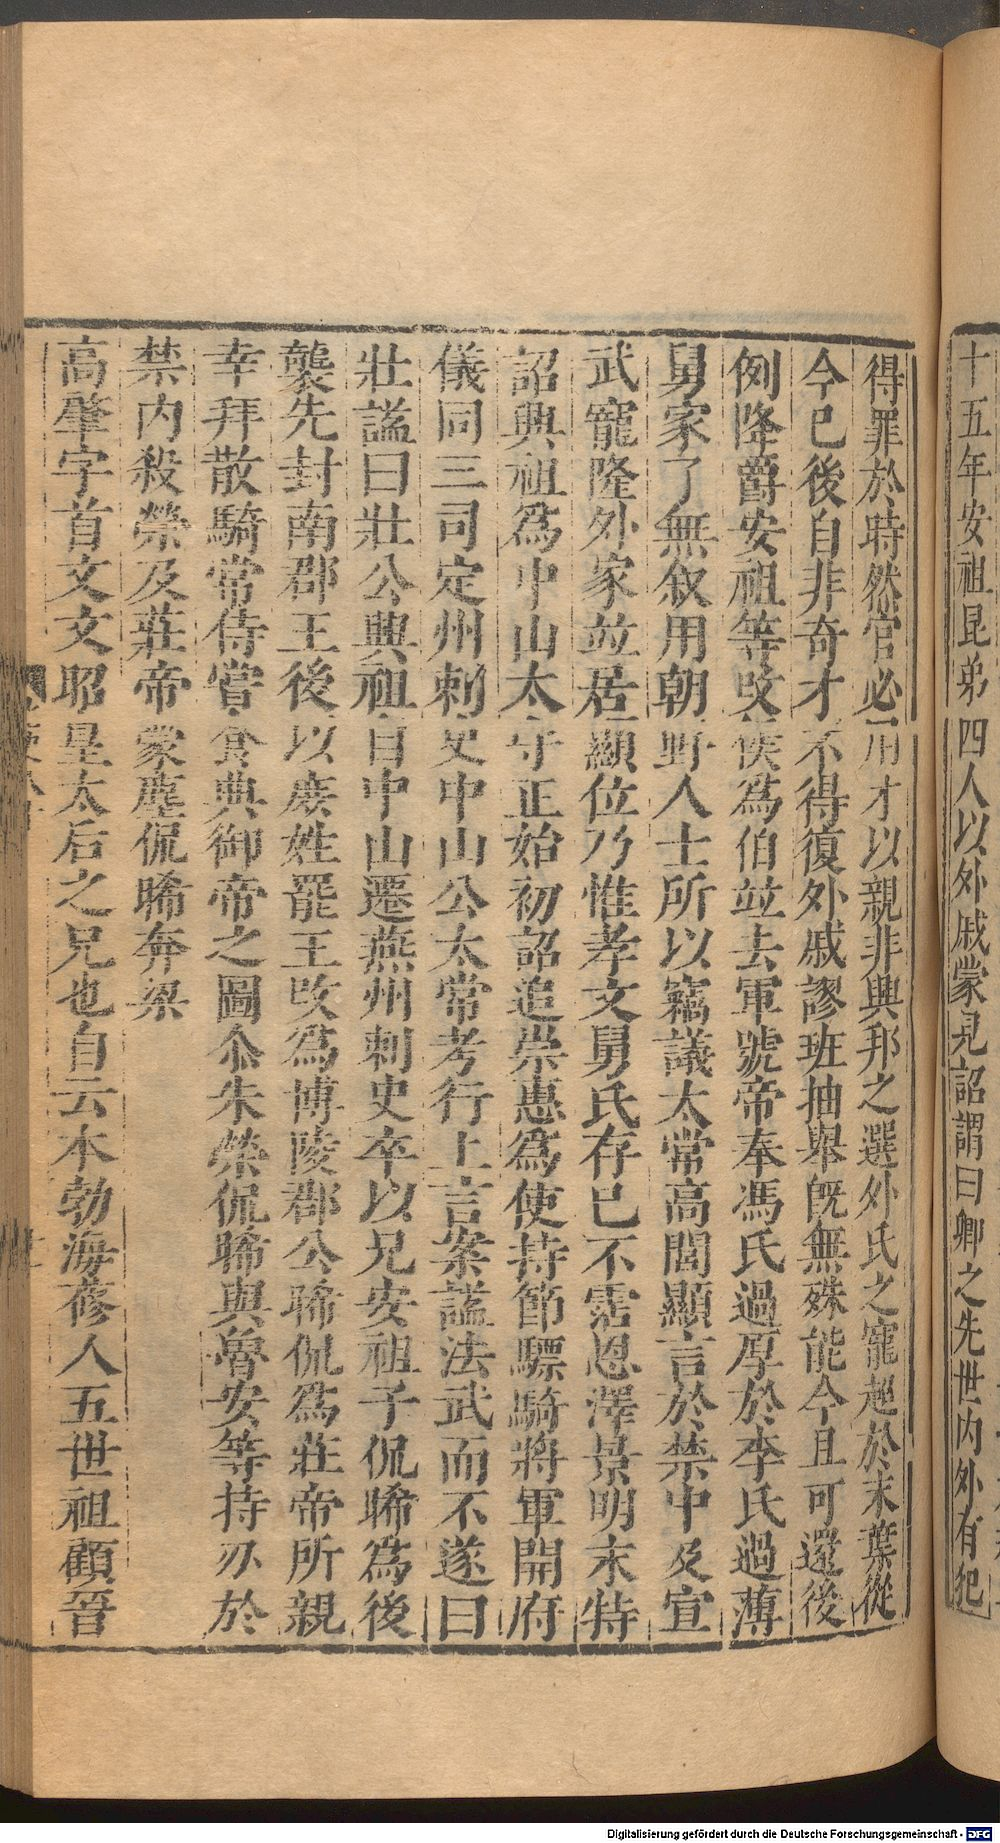 十五年安祖昆弟四人以外戚蒙見詔謂曰卿之先世内外有犯
得罪於時然官必用才以親非興邦之選外氏之寵超於末葉從
今已後自非奇才不得復外戚謬班抽舉既無殊能今且可還後
例降爵安祖等改侯為伯並去軍號帝奉馮氏過厚於李氏過薄
舅家了無敘用朝野人士所以竊議太常高閭顯言於禁中及宣
武寵隆外家並居顯位乃惟孝文舅氏存已不霑恩澤景明末特
詔興祖為中山太守正始初詔追崇惠為使持節驃騎將軍開府
儀同三司定州刺史中山公太常考行上言案謚法武而不遂曰
壯謚曰壯公興祖自中山遷燕州刺史卒以兄安祖子侃晞為後
襲先封南郡王後以庶姓罷王改為博陵郡公晞侃為莊帝所親
幸拜散騎常侍嘗食典御帝之圖尒朱榮侃晞與魯安等持刀於
禁内殺榮及莊帝蒙塵侃晞奔梁
高肇字首文文昭皇太后之兄也自云本勃海蓚人五世祖顧晉
Digitalisierung gefördert durch die Deutsche Forschungsgemeinschaft - DFG